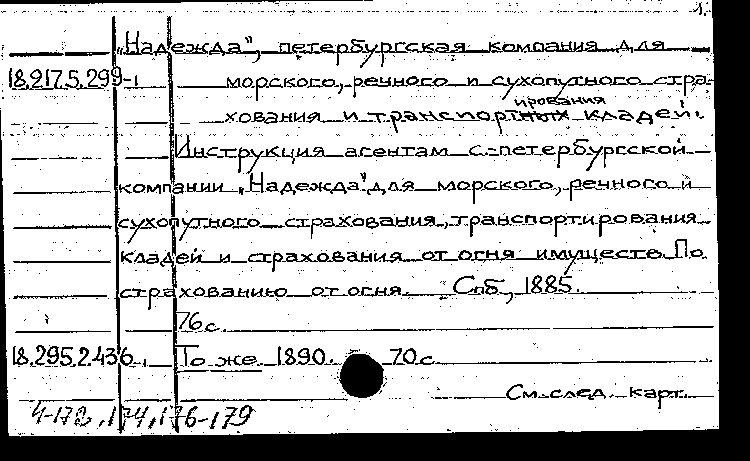 1.
„Надежда", петербургская компания для
18.217.5.299-1 морского, речного и сухопутного стра-
ирования
хования и транспортных кладей.
Инструкция агентам с.-петербургской
компании „Надежда" для морского, речного и
сухопутного страхования, транспортирования
кладей и страхования от огня имуществ. По
страхованию от огня. Спб, 1885.
76 с.
18.295.2.436. То же 1890. 70 с.
См. след. карт.
4-172, 174, 176-179